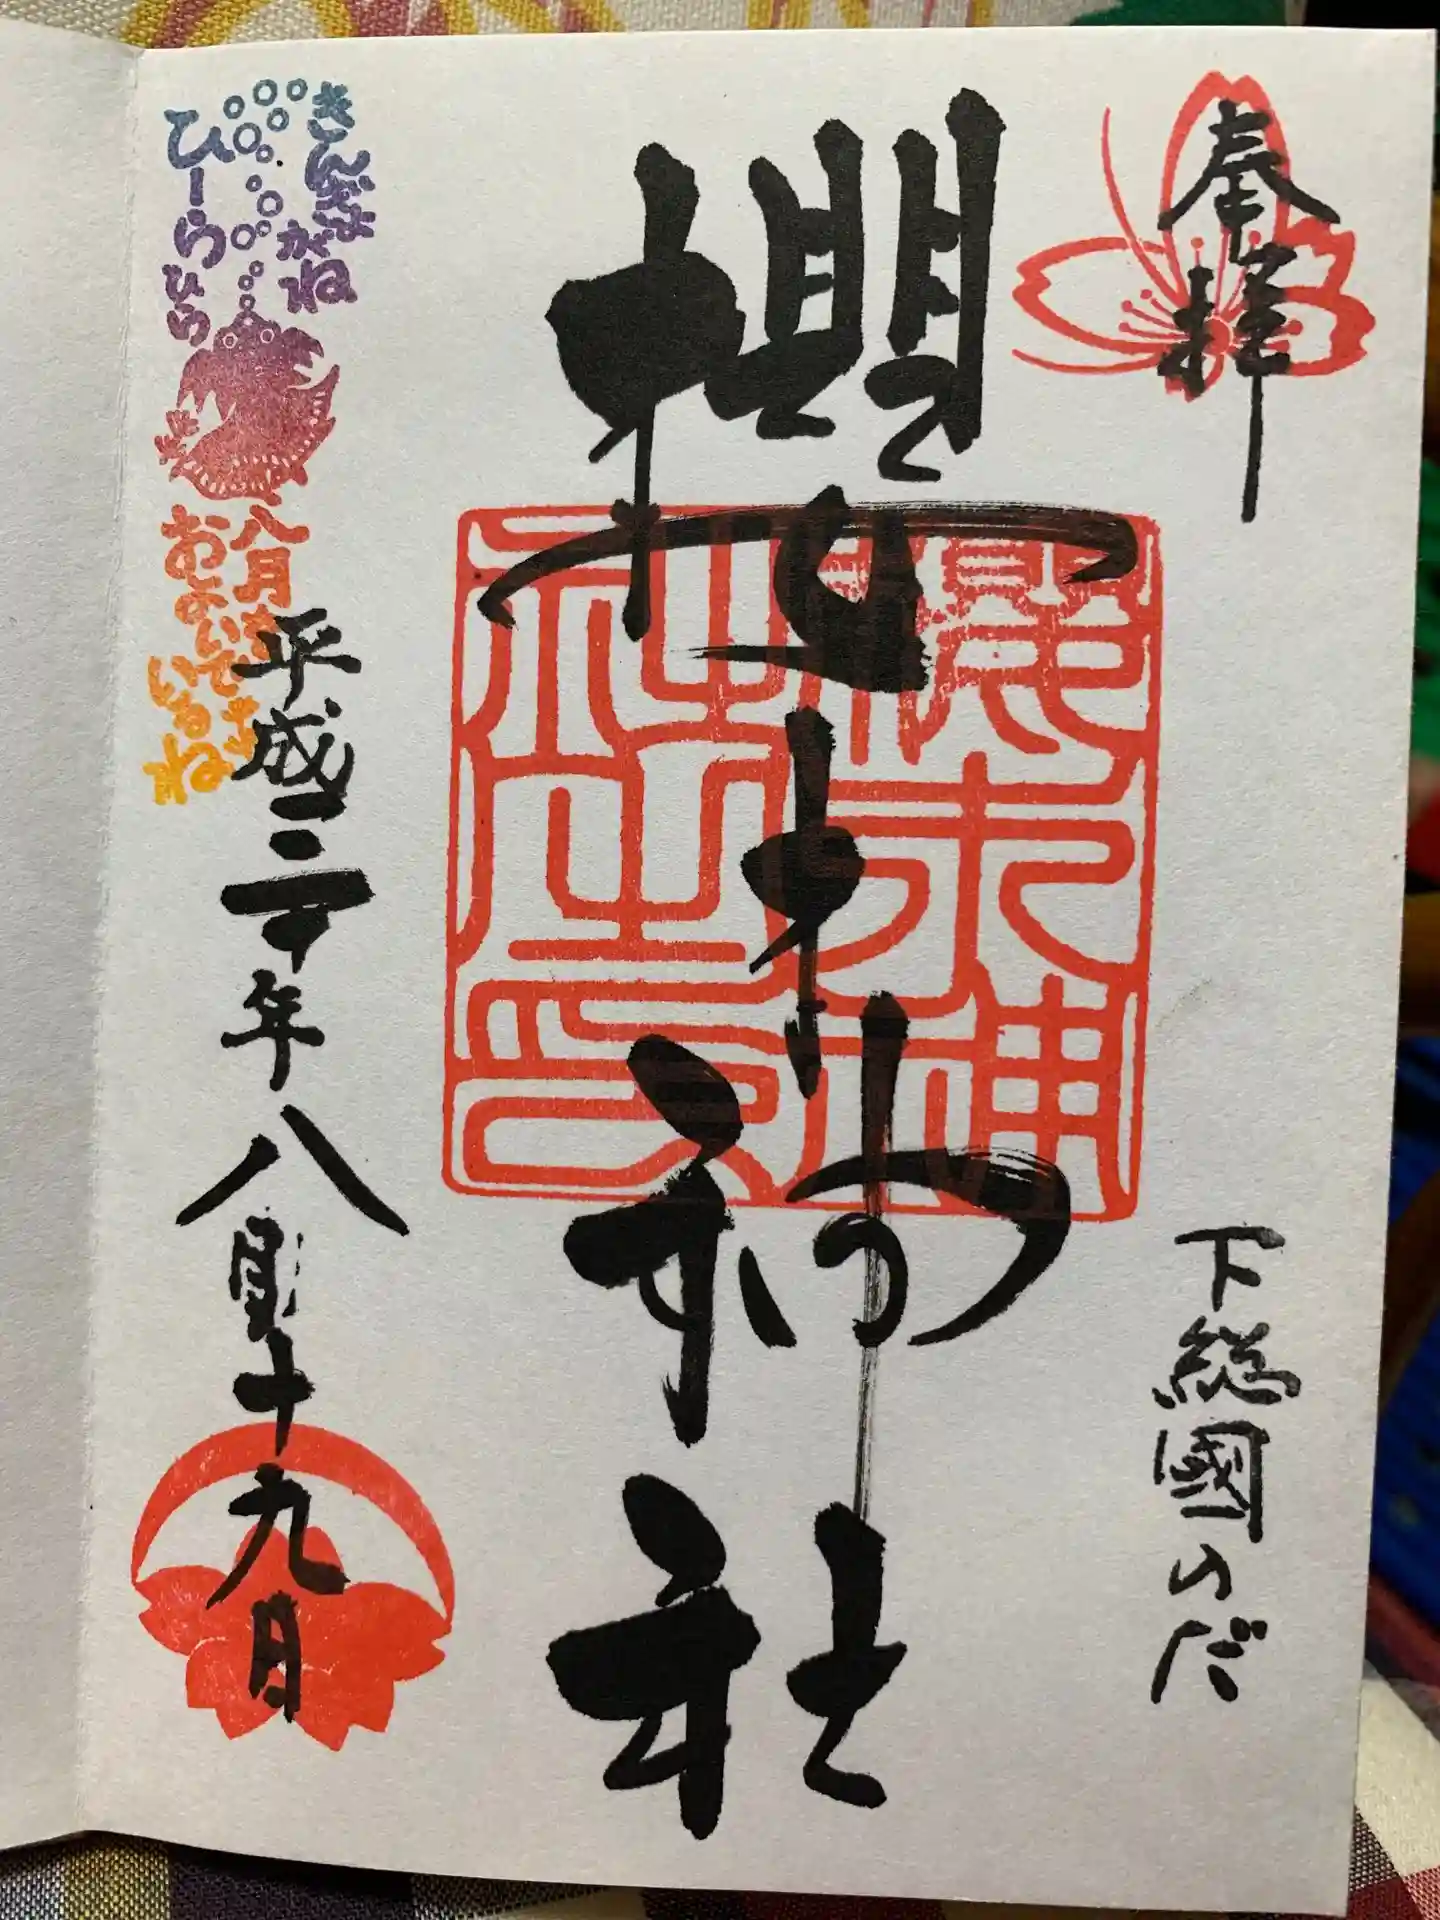 奉拝
下総國のだ
櫻木神社
櫻木神
社之印
きんぎょ
がね
ひーら
ひら
八月
およいで
いるね
平成三十年八月十九日